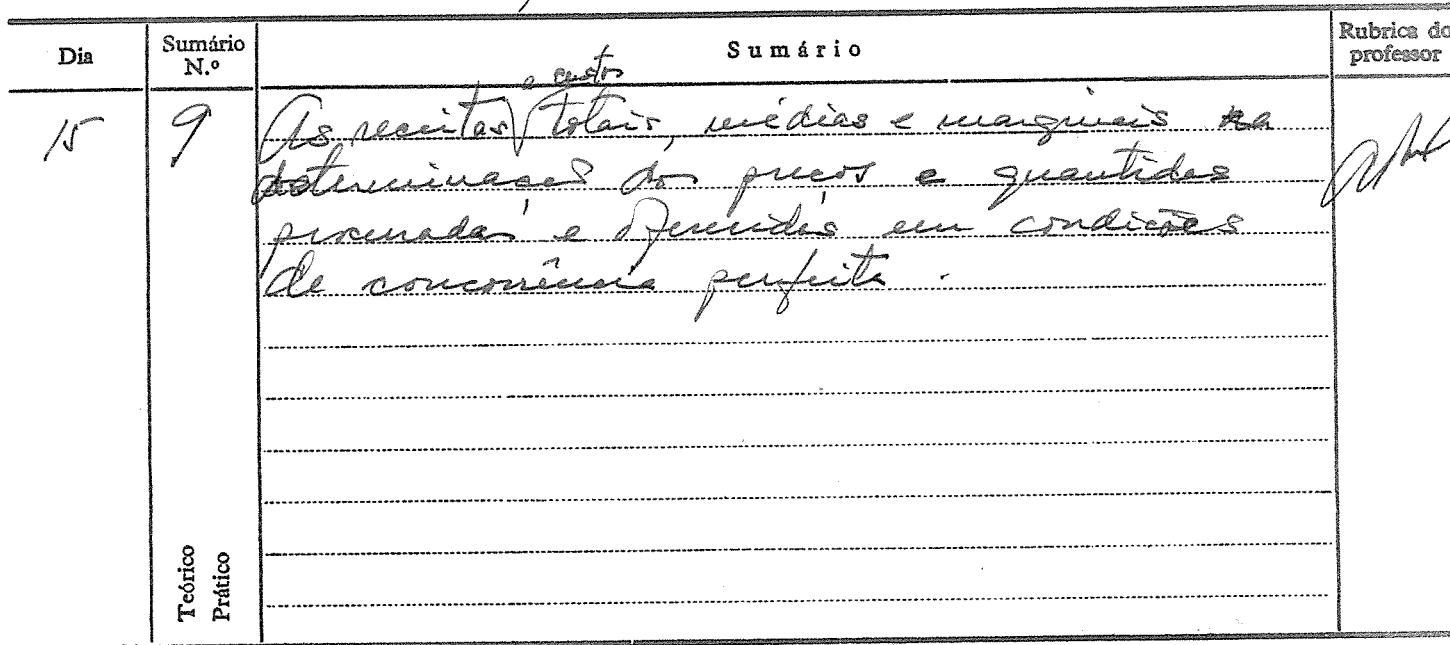 Dia
Sumário N.º
Sumário
Rubrica do professor
15
9
e custos
As receitas totais, médias e marginais na
determinação dos preços e quantidas
procuradas e oferecidas em condições
de concorrência perfeita.
Teórico
Prático